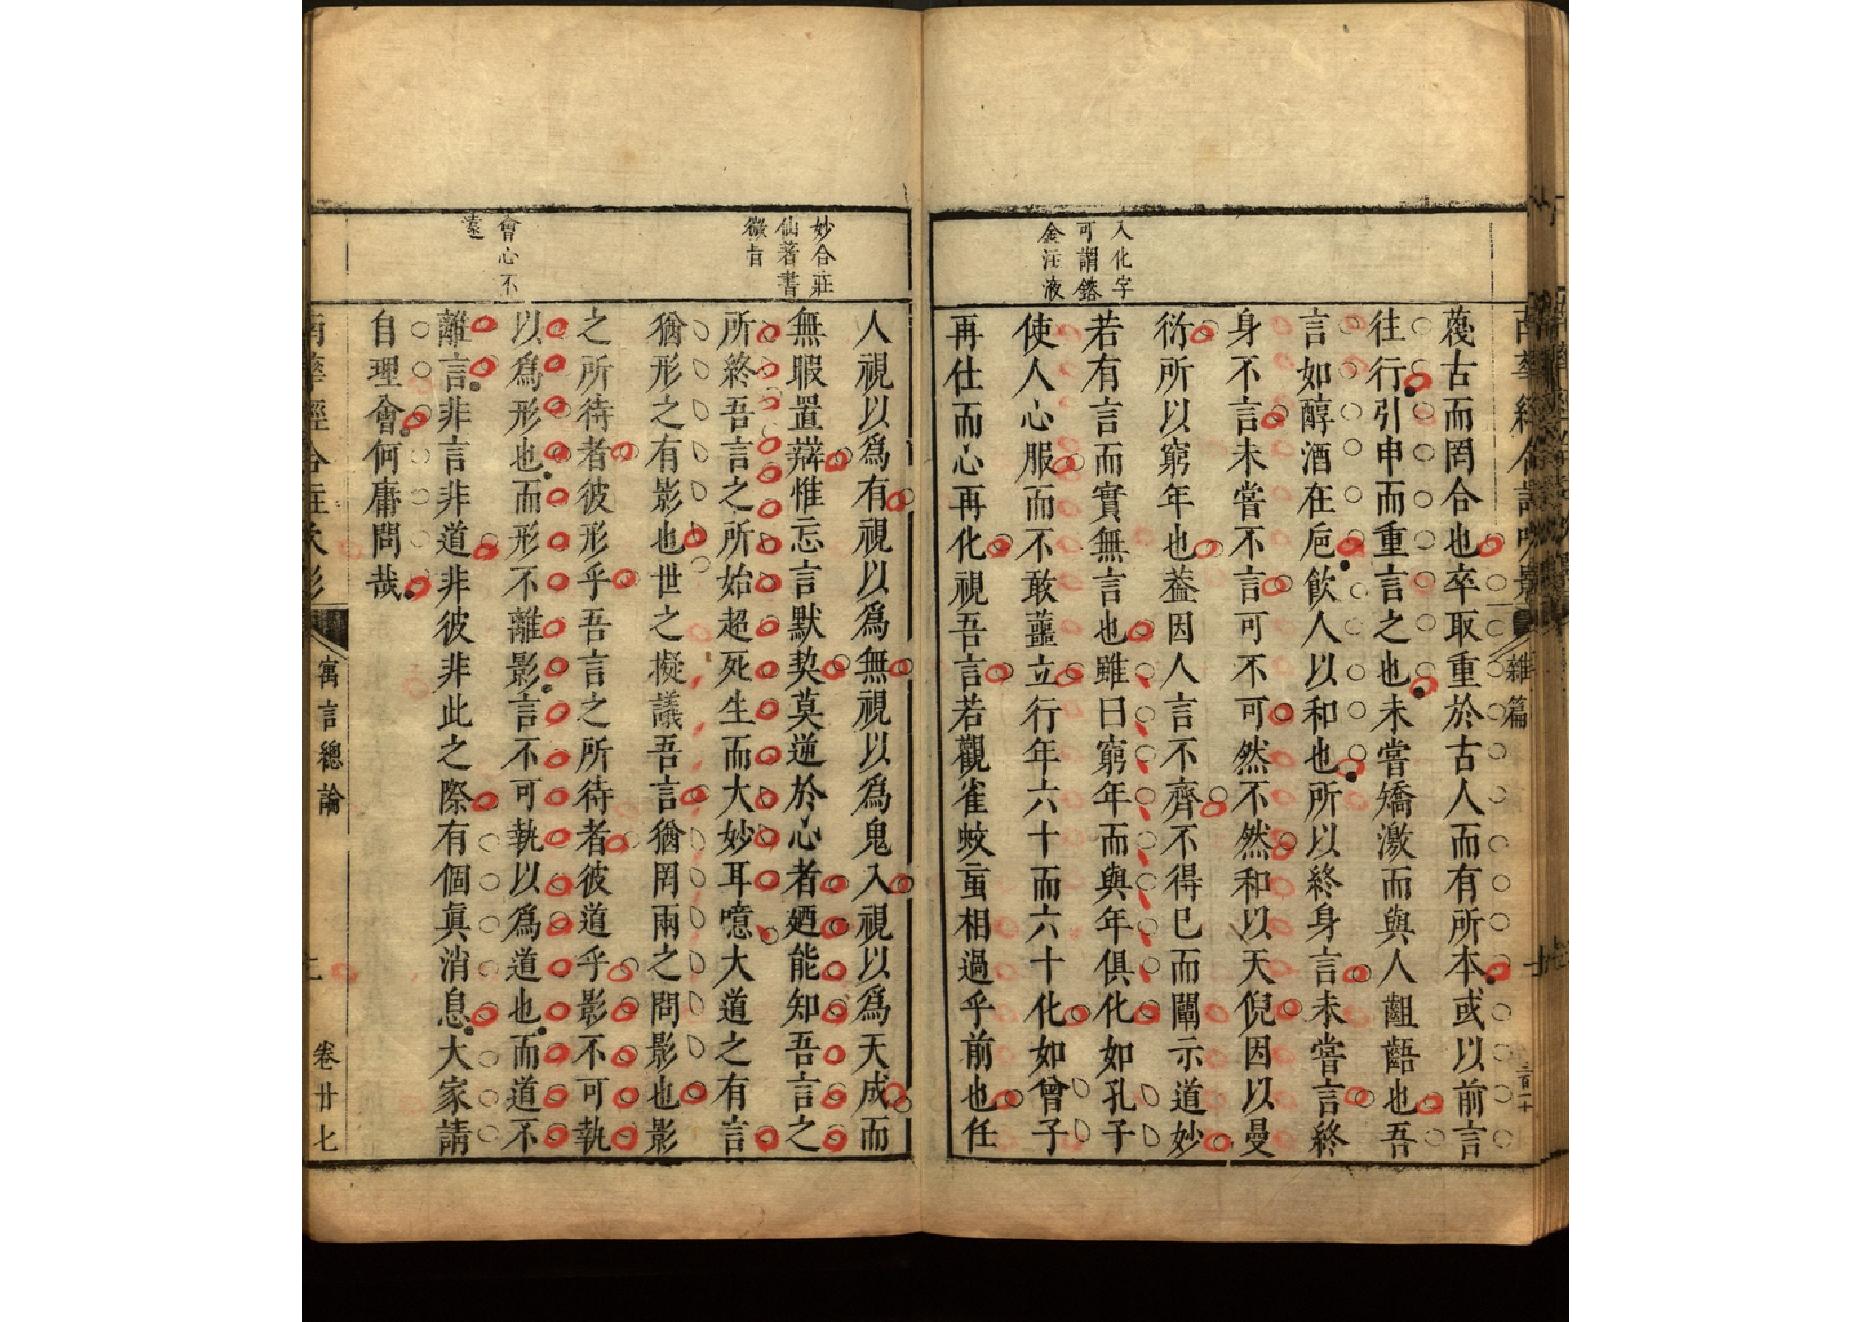 雜篇
蔑古而罔合也卒取重於古人而有所本或以前言
往行引申而重言之也未嘗矯激而與人齟齬也吾
言如醇酒在巵飲人以和也所以終身言未嘗言終
身不言未嘗不言可不可然不然和以天倪因以曼
衍所以窮年也葢因人言不齊不得已而闡示道妙
若有言而實無言也雖曰窮年而與年俱化如孔子
使人心服而不敢蘁立行年六十而六十化如曾子
再仕而心再化視吾言若觀雀蚊䖟相過乎前也任
入化字
可謂鎔
金汪液
人視以爲有視以爲無視以爲鬼入視以爲天成而
無暇置辯惟忘言默契莫逆於心者廼能知吾言之
所終吾言之所始超死生而大妙耳噫大道之有言
猶形之有影也世之擬議吾言猶罔兩之問影也影
之所待者彼形乎吾言之所待者彼道乎影不可執
以爲形也而形不離影言不可執以爲道也而道不
離言非言非道非彼非此之際有個眞消息大家請
自理會何庸問哉
妙合莊
仙著書
微旨
會心不
遠
寓言總論
卷廿七